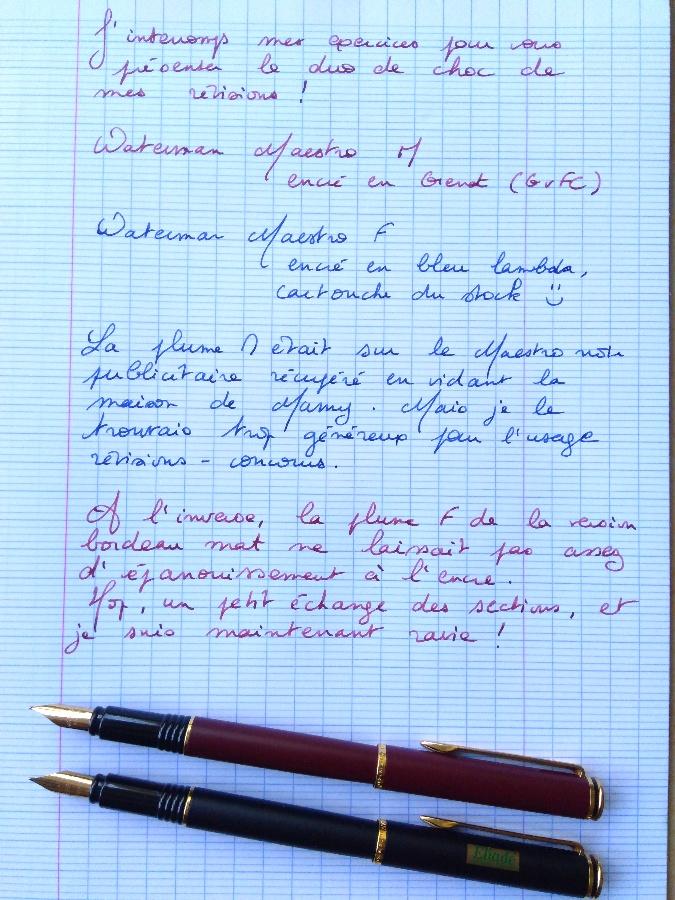 J'interromps mes exercices pour vous
présenter le duo de choc de
mes révisions !
Waterman Maestro M
encré en Garnet (GvFC)
Waterman Maestro F
encré en bleu lambda,
cartouche du stock
La plume M était sur le Maestro noir
publicitaire récupéré en vidant la
maison de Mamy. Mais je le
trouvais trop généreux pour l'usage
révisions - concours.
A l'inverse, la plume F de la version
bordeau mat ne laissait pas assez
d'épanouissement à l'encre.
Hop, un petit échange des sections, et
je suis maintenant ravie !